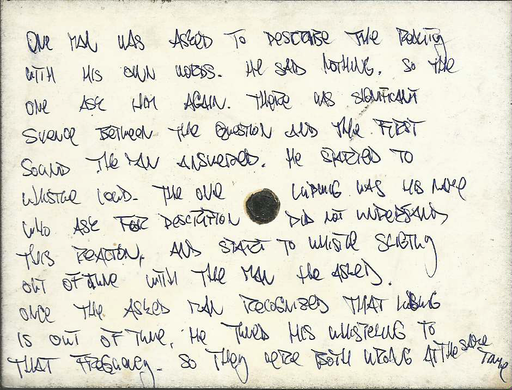 ONE MAN WAS ASKED TO DESCRIBE THE REALITY
WITH HIS OWN WORDS. HE SAID NOTHING. SO THE
ONE ASK HIM AGAIN. THERE WAS SIGNIFICANT
SILENCE BETWEEN THE QUESTION AND THE FIRST
SOUND THE MAN ANSWERED. HE STARTED TO
WHISTLE LOUD. THE ONE WAS HIS NAME
WHO ASK FOR DESCRIPTION DID NOT UNDERSTAND
THIS REACTION, AND START TO WHISTLE
OUT OF TUNE WITH THE MAN HE ASKED.
ONCE THE ASKED MAN RECOGNISED THAT
IS OUT OF TUNE, HE TUNED HIS WHISTELING TO
THAT FREQUENCY. SO THEY WERE BOTH WRONG AT THE SAME
TIME